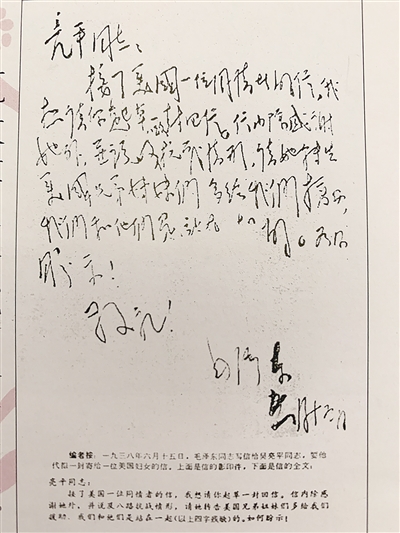 亮平同志：
接了美國一位同情者的信，我
想请你起草一封回信。信内除感谢
她外，並说及八路抗战情形，请她转告
美國兄弟姊妹們多給我們援助，
我們和他們是站在的。如何
盼示！
敬礼！
毛泽东
编者按：一九三八年六月十五日，毛泽东同志写信给吴亮平同志，要他
代拟一封寄给一位美国妇女的信。上面是信的影印件，下面是信的全文：
亮平同志：
接了美国一位同情者的信，我想请你起草一封回信。信内除感
谢她外，并说及八路抗战情形，请她转告美国兄弟姐妹们多给我们
援助，我们和他们是站在一起(以上四字残缺)的。如何盼示！